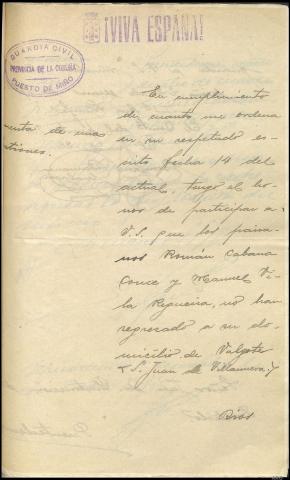 ¡VIVA ESPAÑA!
GUARDIA CIVIL
PROVINCIA DE LA CORUÑA
PUESTO DE MIÑO
En cumplimiento
de cuanto me ordena
en su respetado es-
crito fecha 14 del
actual, tengo el ho-
nor de participar a
V.S. que los paisa-
nos Román Cabana
Couce y Manuel Vi-
la Regueira, no han
regresado a su do-
micilio de Valpote
S. Juan de Villanueva
Dios
enta de unas